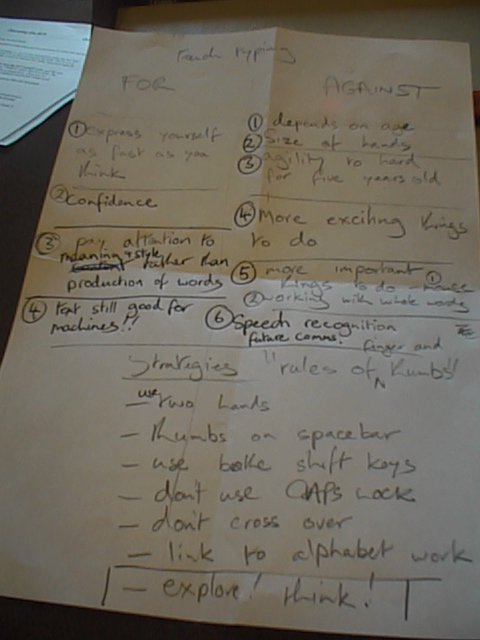 Touch typing
FOR
① Express yourself
as fast as you
think
② Confidence
③ pay attention to
meaning + style
rather than
production of words
④ Text still good for
machines!!
AGAINST
① depends on age
② Size of hands
③ agility to hard
for five years old
④ More exciting things
to do
⑤ more important ①
things to do - mouse
② working with whole words
⑥ Speech recognition
future comms.
Strategies "rules of finger and thumbs"
— use two hands
— thumbs on spacebar
— use bothe shift keys
— don't use CAPS Lock
— don't cross over
— link to alphabet work
— explore! think!